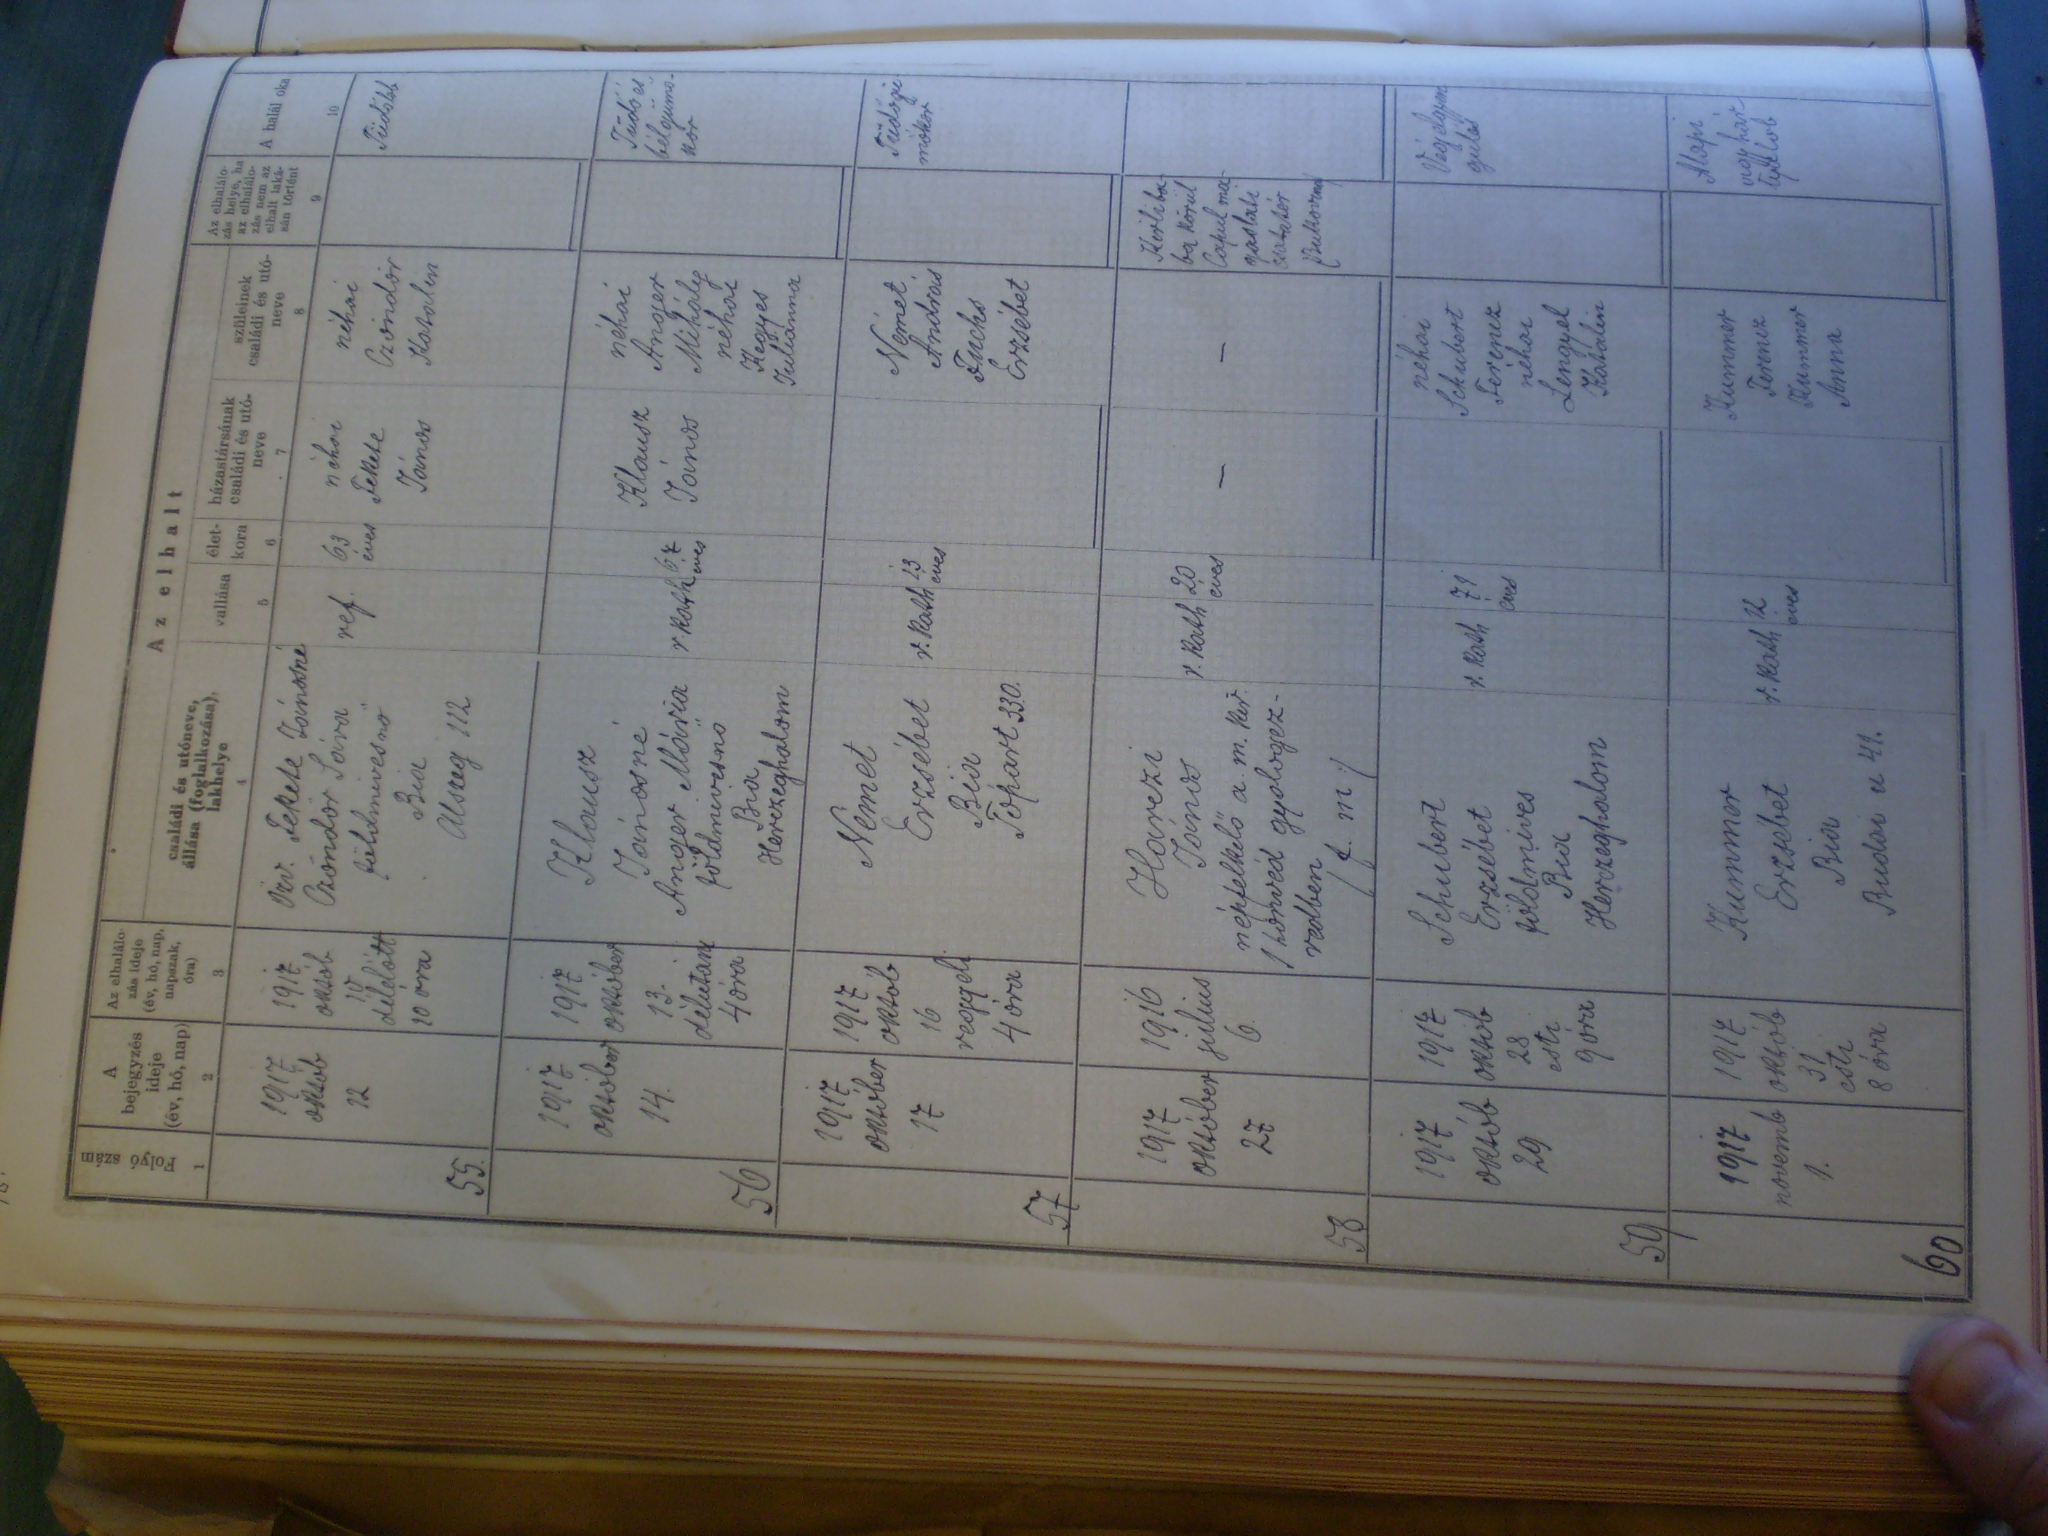 Az elhalt
Folyó szám
A bejegyzés ideje (év, hó, nap)
Az elhalálo-
zás ideje
(év, hó, nap,
napszak,
óra)
családi és utóneve,
állása (foglalkozása),
lakhelye
vallása
élet-
kora
házastársának
családi és utó-
neve
szüleinek
családi és utó-
neve
Az elhalálo-
zás helye, ha
az elhalálo-
zás nem az
elhalt laká-
sán történt
A halál oka
1
2
3
4
5
6
7
8
9
10
55.
1917
októb
12
1917
októb
délelőtt
10 óra
Özv. Fekete Jánosné
Czöndör Sára
földmivesnő
Bia
Alszeg 112
ref.
63
éves
néhai
Fekete
János
néhai
Czöndör
Katalin
Tüdőbb
56
1917
október
14.
1917
október
13.
délután
4 óra
Klausz
Jánosné
Anger Mária
földmivesnő
Bia
Herczeghalom
r. kath
67
éves
Klausz
János
néhai
Anger
Mihály
néhai
Hegyes
Julianna
Tüdő és
bélgümő-
kór
57
1917
október
17
1917
októb
16
reggeli
4 óra
Német
Erzsébet
Bia
Tópart 330.
r. kath
13
éves
Német
András
Fuchs
Erzsébet
Tüdőgü-
mőkór
58
1917
október
27
1916
július
6.
Havrzi
János
népfelkelő a m. kir.
1 honvéd gyalogez-
redben
r. kath
20
éves
–
–
Kirliba-
ba körül
Capul ma-
gaslati
csatatér
Bukovina
59
1917
októb
29
1917
októb
28
esti
9 óra
Schubert
Erzsébet
földmives
Bia
Herczeghalom
r. kath
71
éves
néhai
Schubert
Ferencz
néhai
Lengyel
Katalin
Végelgyen
gülés
60
1917
novemb
1.
1917
októb
31
esti
8 óra
Kummer
Erzsébet
Bia
Budai u 41.
r. kath
12
éves
Kummer
Ferencz
Kummer
Anna